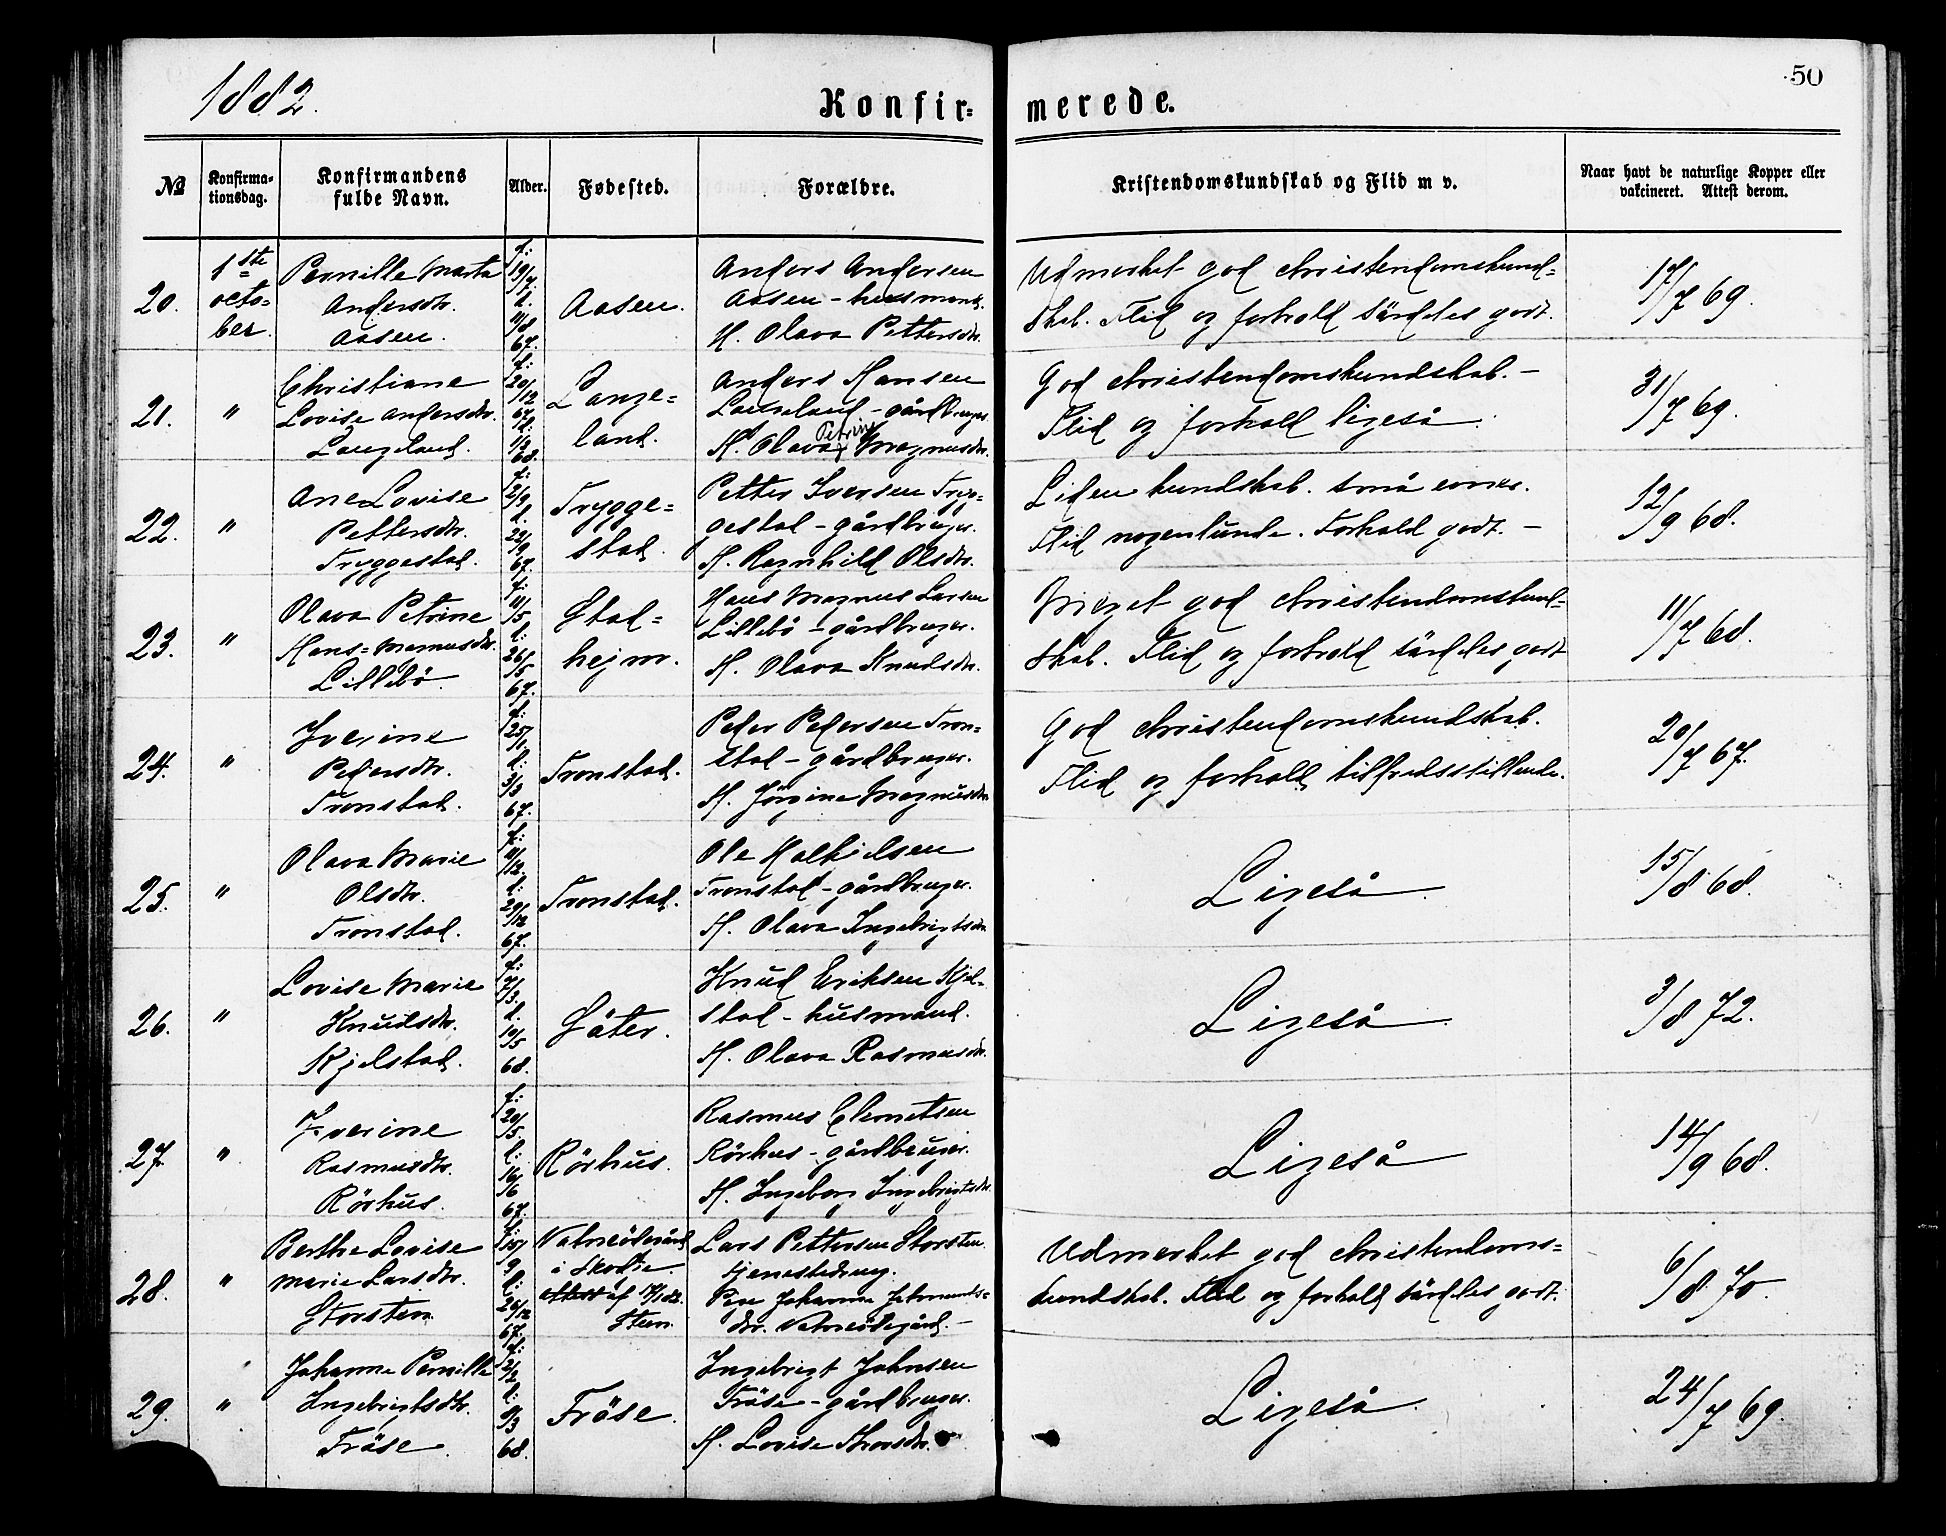 1882.
Konfir=
merede.
50
№
Konfirma-
tionsdag.
Konfirmandens
fulde Navn.
Alder.
Fødested.
Forældre.
Kristendomskundskab og Flid m v.
Naar havt de naturlige Kopper eller
vakcineret. Attest derom.
20.
1ste
octo-
ber.
Pernille Marta
Andersdtr.
Aasen.
f:
19/7.
d.
11/8
67.
Aasen.
Anders Andersen
Aasen - husmand.
H. Olava Pettersdtr.
Udmerket god christendomskund=
skab. Flid og forhold särdeles godt.
17/7 69.
21.
"
Christiane
Lovise Andersdtr.
Langeland.
f:
20/12
67.
d:
1/2
68.
Lange=
land.
Anders Hansen
Langeland - gårdbruger.
H. Olava Petrine Magnusdtr.
God christendomskundskab. -
Flid og forhold ligeså.
31/7 69.
22.
"
Ane Lovise
Pettersdtr.
Tryggestad.
f:
2/9
d.
22/9
67.
Trygge=
stad.
Petter Iversen Tryg=
gestad - gårdbruger.
H. Ragnhild Olsdtr.
Liden kundskab. små evner.
Flid nogenlunde. Forhold godt. -
12/9 68.
23.
"
Olava Petrine
Hans=Magnusdtr.
Lillebö.
f:
11/5
d:
26/5
67.
Stad=
hejm.
Hans Magnus Larsen
Lillebö - gårdbruger.
H. Olava Knudsdtr.
Meget god christendomskund=
skab. Flid og forhold särdeles godt
11/7 68.
24.
"
Iverine
Pedersdtr.
Tronstad.
f:
25/1
d:
3/3
67.
Tronstad.
Peder Pedersen Tron=
stad - gårdbruger.
H. Jörgine Magnusdtr.
God christendomskundskab.
Flid og forhold tilfredsstillende.
20/7 67.
25.
"
Olava Marie
Olsdtr.
Tronstad.
f:
11/12
d:
29/12
67.
Tronstad.
Ole Halkielsen
Tronstad - gårdbruger.
H. Olava Ingebrigtsdtr.
Ligeså.
15/8 68.
26.
"
Lovise Marie
Knudsdtr.
Kjelstad.
f:
7/3.
d.
10/5
68.
Säter.
Knud Eriksen Kjel=
stad - husmand.
H. Olava Rasmusdtr.
Ligeså.
3/8 72.
27.
"
Iverine
Rasmusdtr.
Rörhus.
f:
20/5.
d:
16/6
67.
Rörhus.
Rasmus Clemetsen
Rörhus - gårdbruger.
H. Ingeborg Ingebrigtsdtr.
Ligeså
14/9 68.
28.
"
Berthe Lovise
Marie Larsdtr.
Storsten
f:
15/9
d:
26/12
67.
Vatneödegård
i Skodje.
attest af
Steen.
Lars Pettersen Storsten.
tjenestedreng.
Pige Johanne
dtr. Vatneödegård. -
Udmerket god christendoms=
kundskab. Flid og forhold särdeles godt.
6/8 70.
29.
"
Johanne Pernille
Ingebrigtsdtr.
Fröse.
f:
2/2
d:
9/3
68.
Fröse.
Ingebrigt Johnsen
Fröse - gårdbruger.
H. Lovise
Ligeså.
24/7 69.